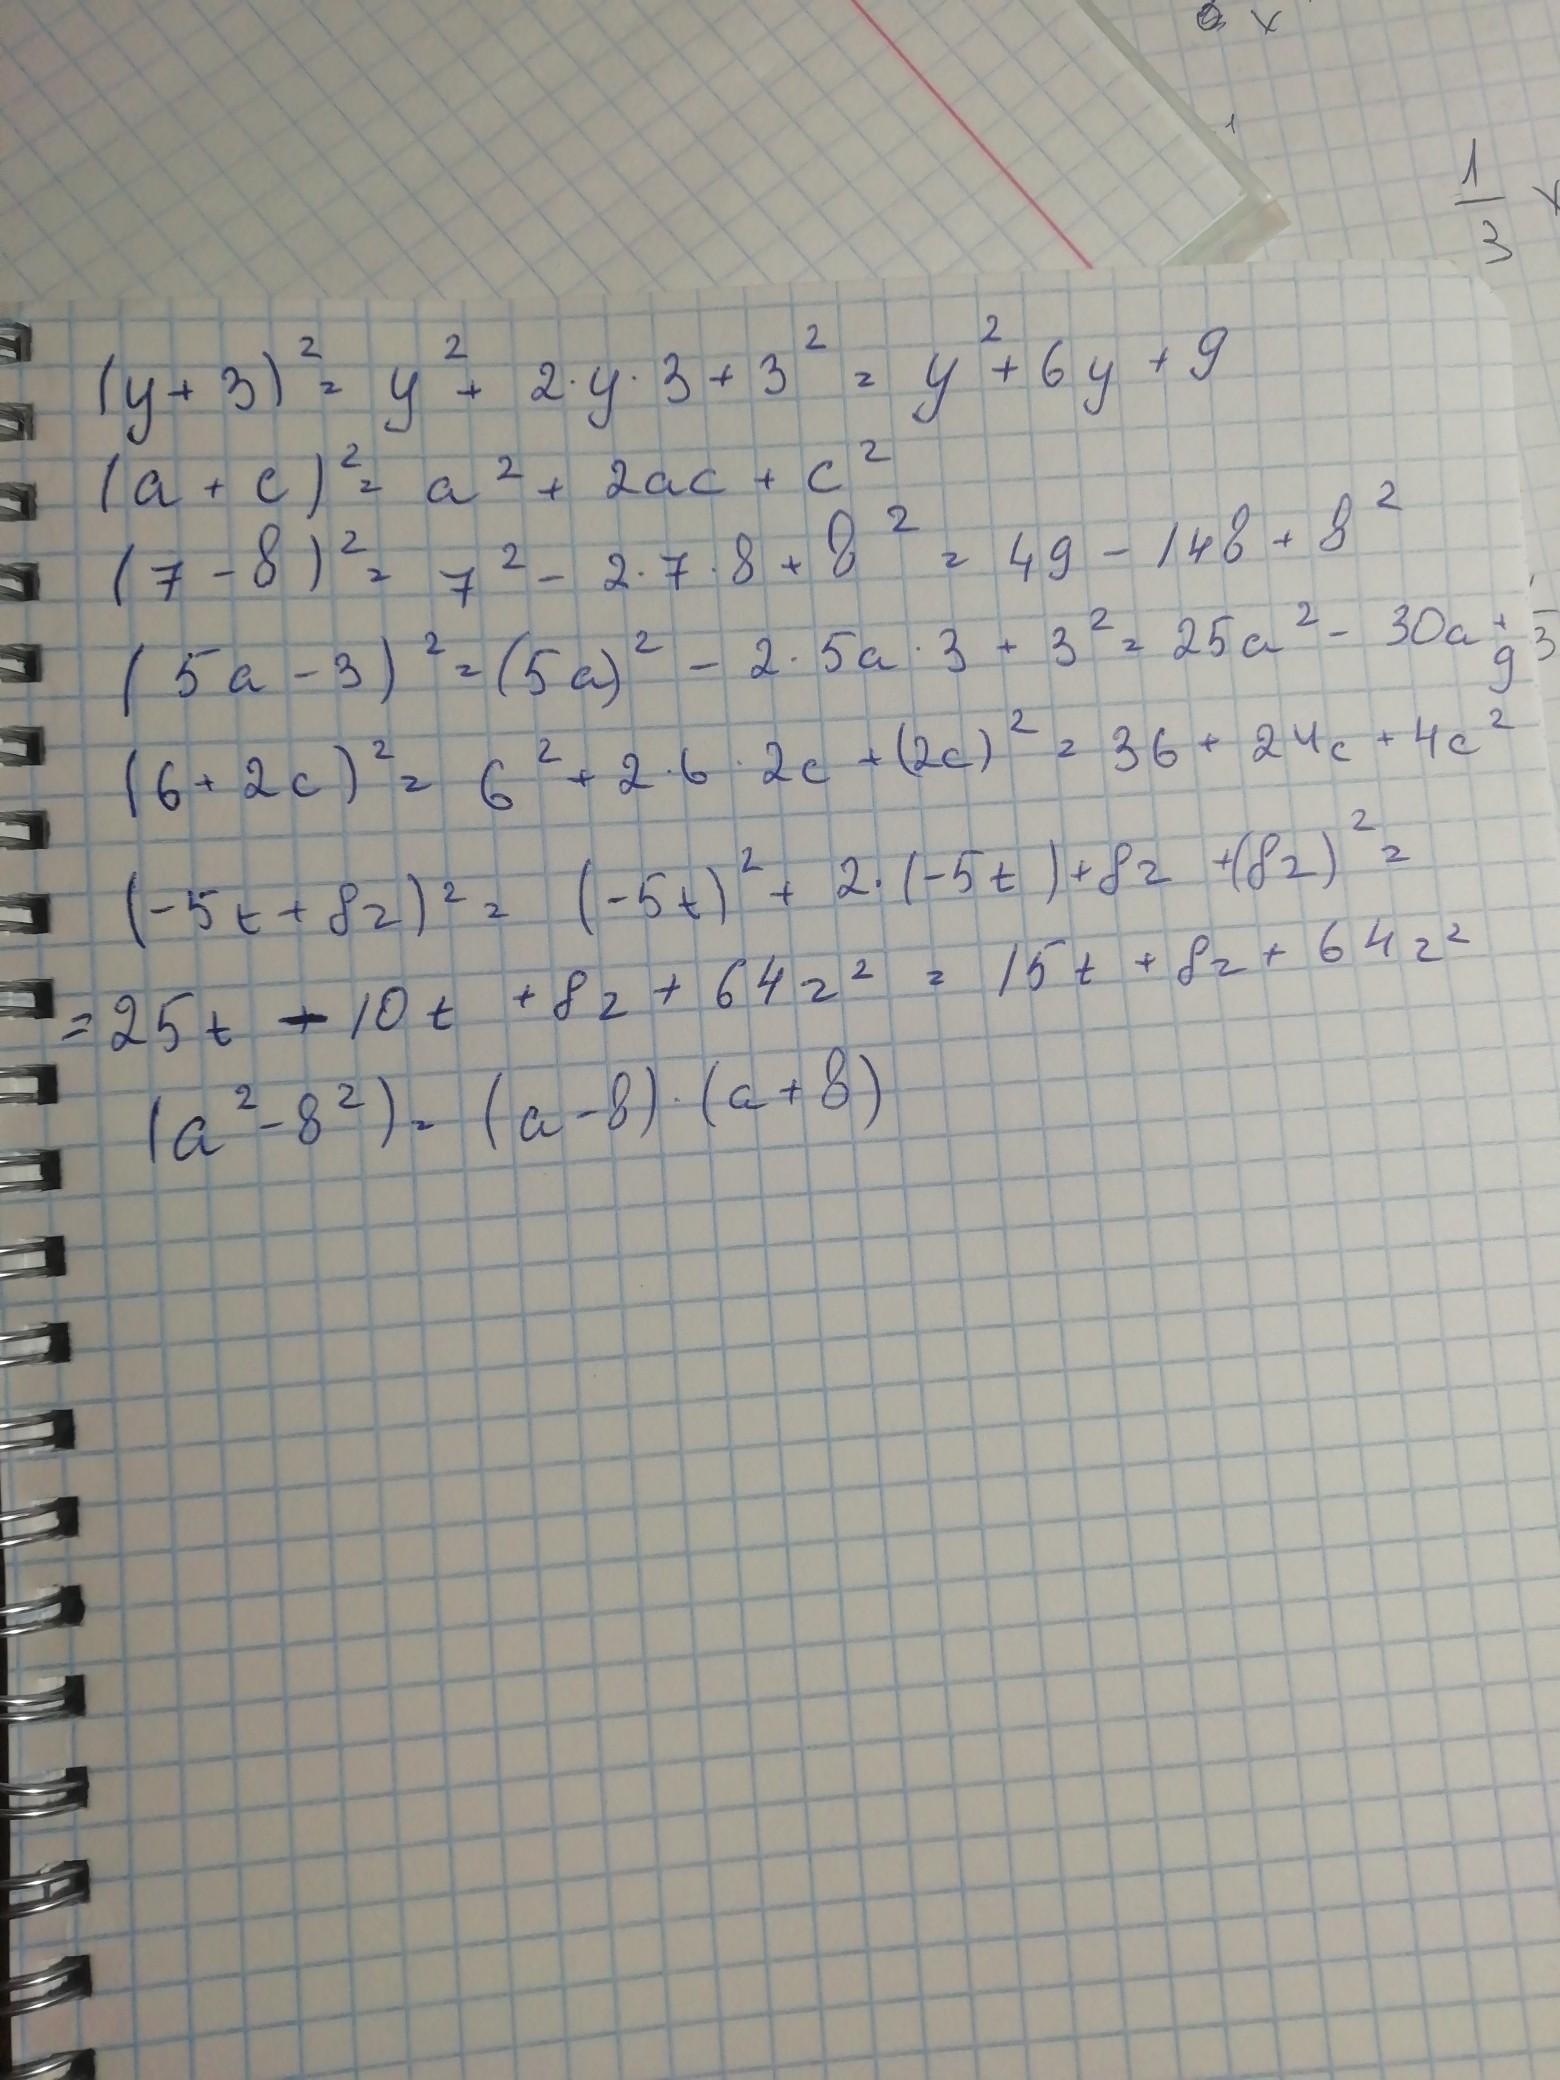 x
1
1/3 x
(y + 3)² = y² + 2·y·3 + 3² = y² + 6y + 9
(a + c)² = a² + 2ac + c²
(7 - в)² = 7² - 2·7·в + в² = 49 - 14в + в²
(5a - 3)² = (5a)² - 2·5a·3 + 3² = 25a² - 30a + 9
(6 + 2c)² = 6² + 2·6·2c + (2c)² = 36 + 24c + 4c²
(-5t + 8z)² = (-5t)² + 2·(-5t) + 8z + (8z)² =
= 25t - 10t + 8z + 64z² = 15t + 8z + 64z²
(a² - в²) = (a - в)·(a + в)